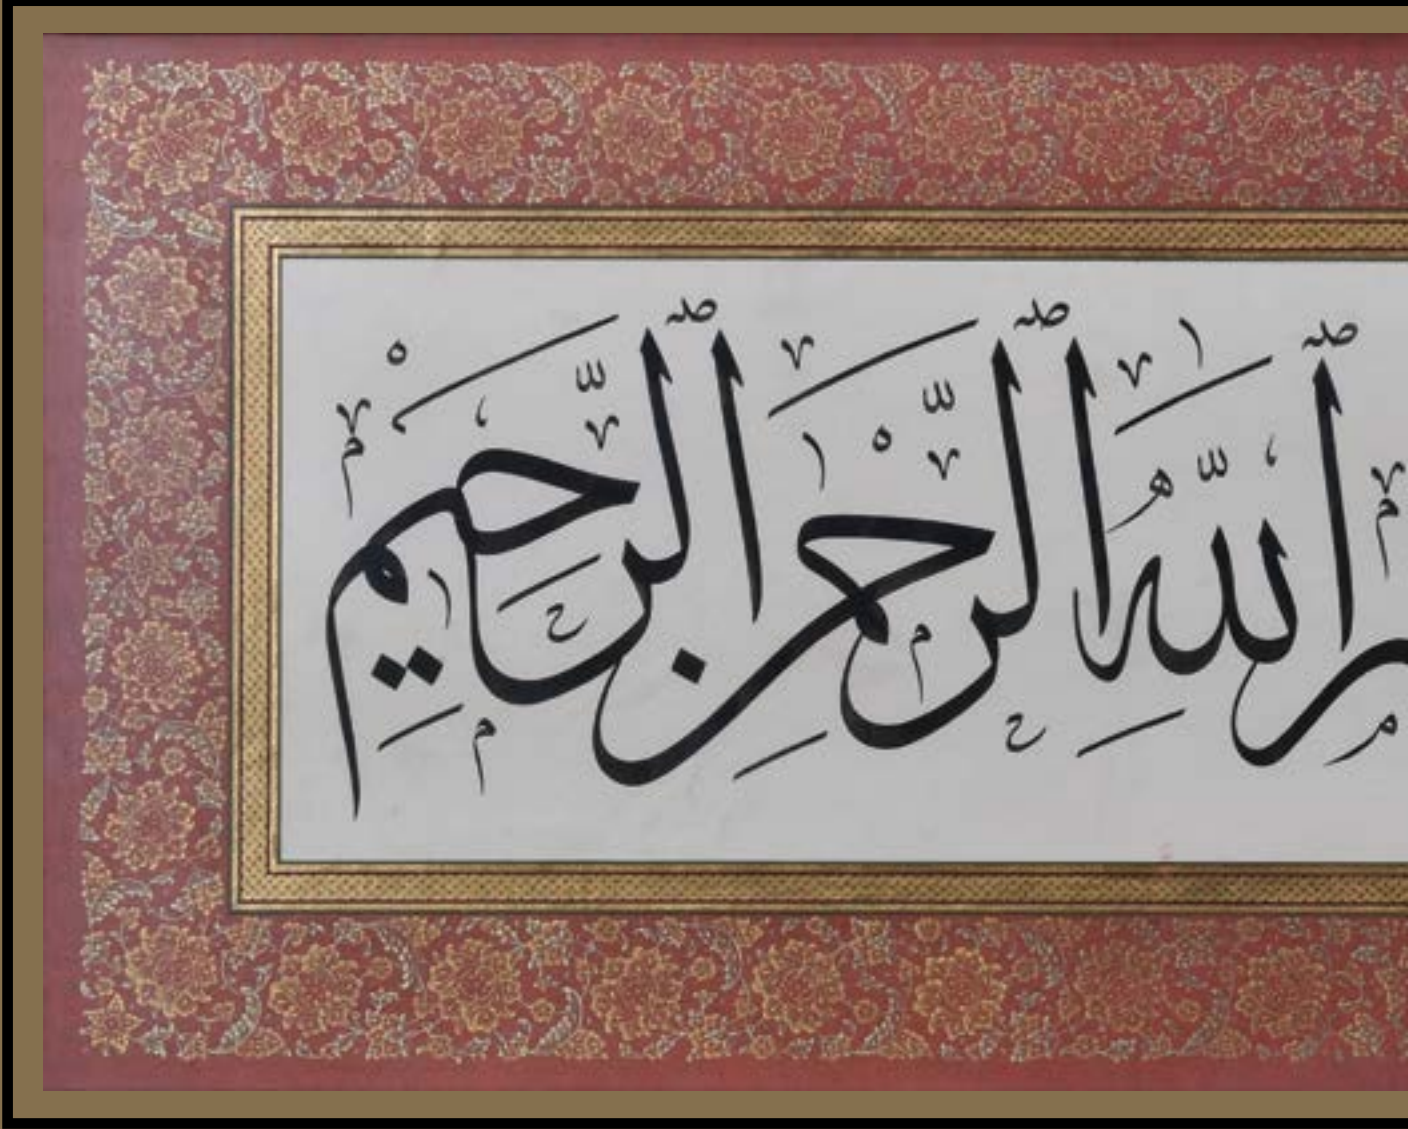 ٱللّٰهِ ٱلرَّحْمٰنِ ٱلرَّحِيمِ